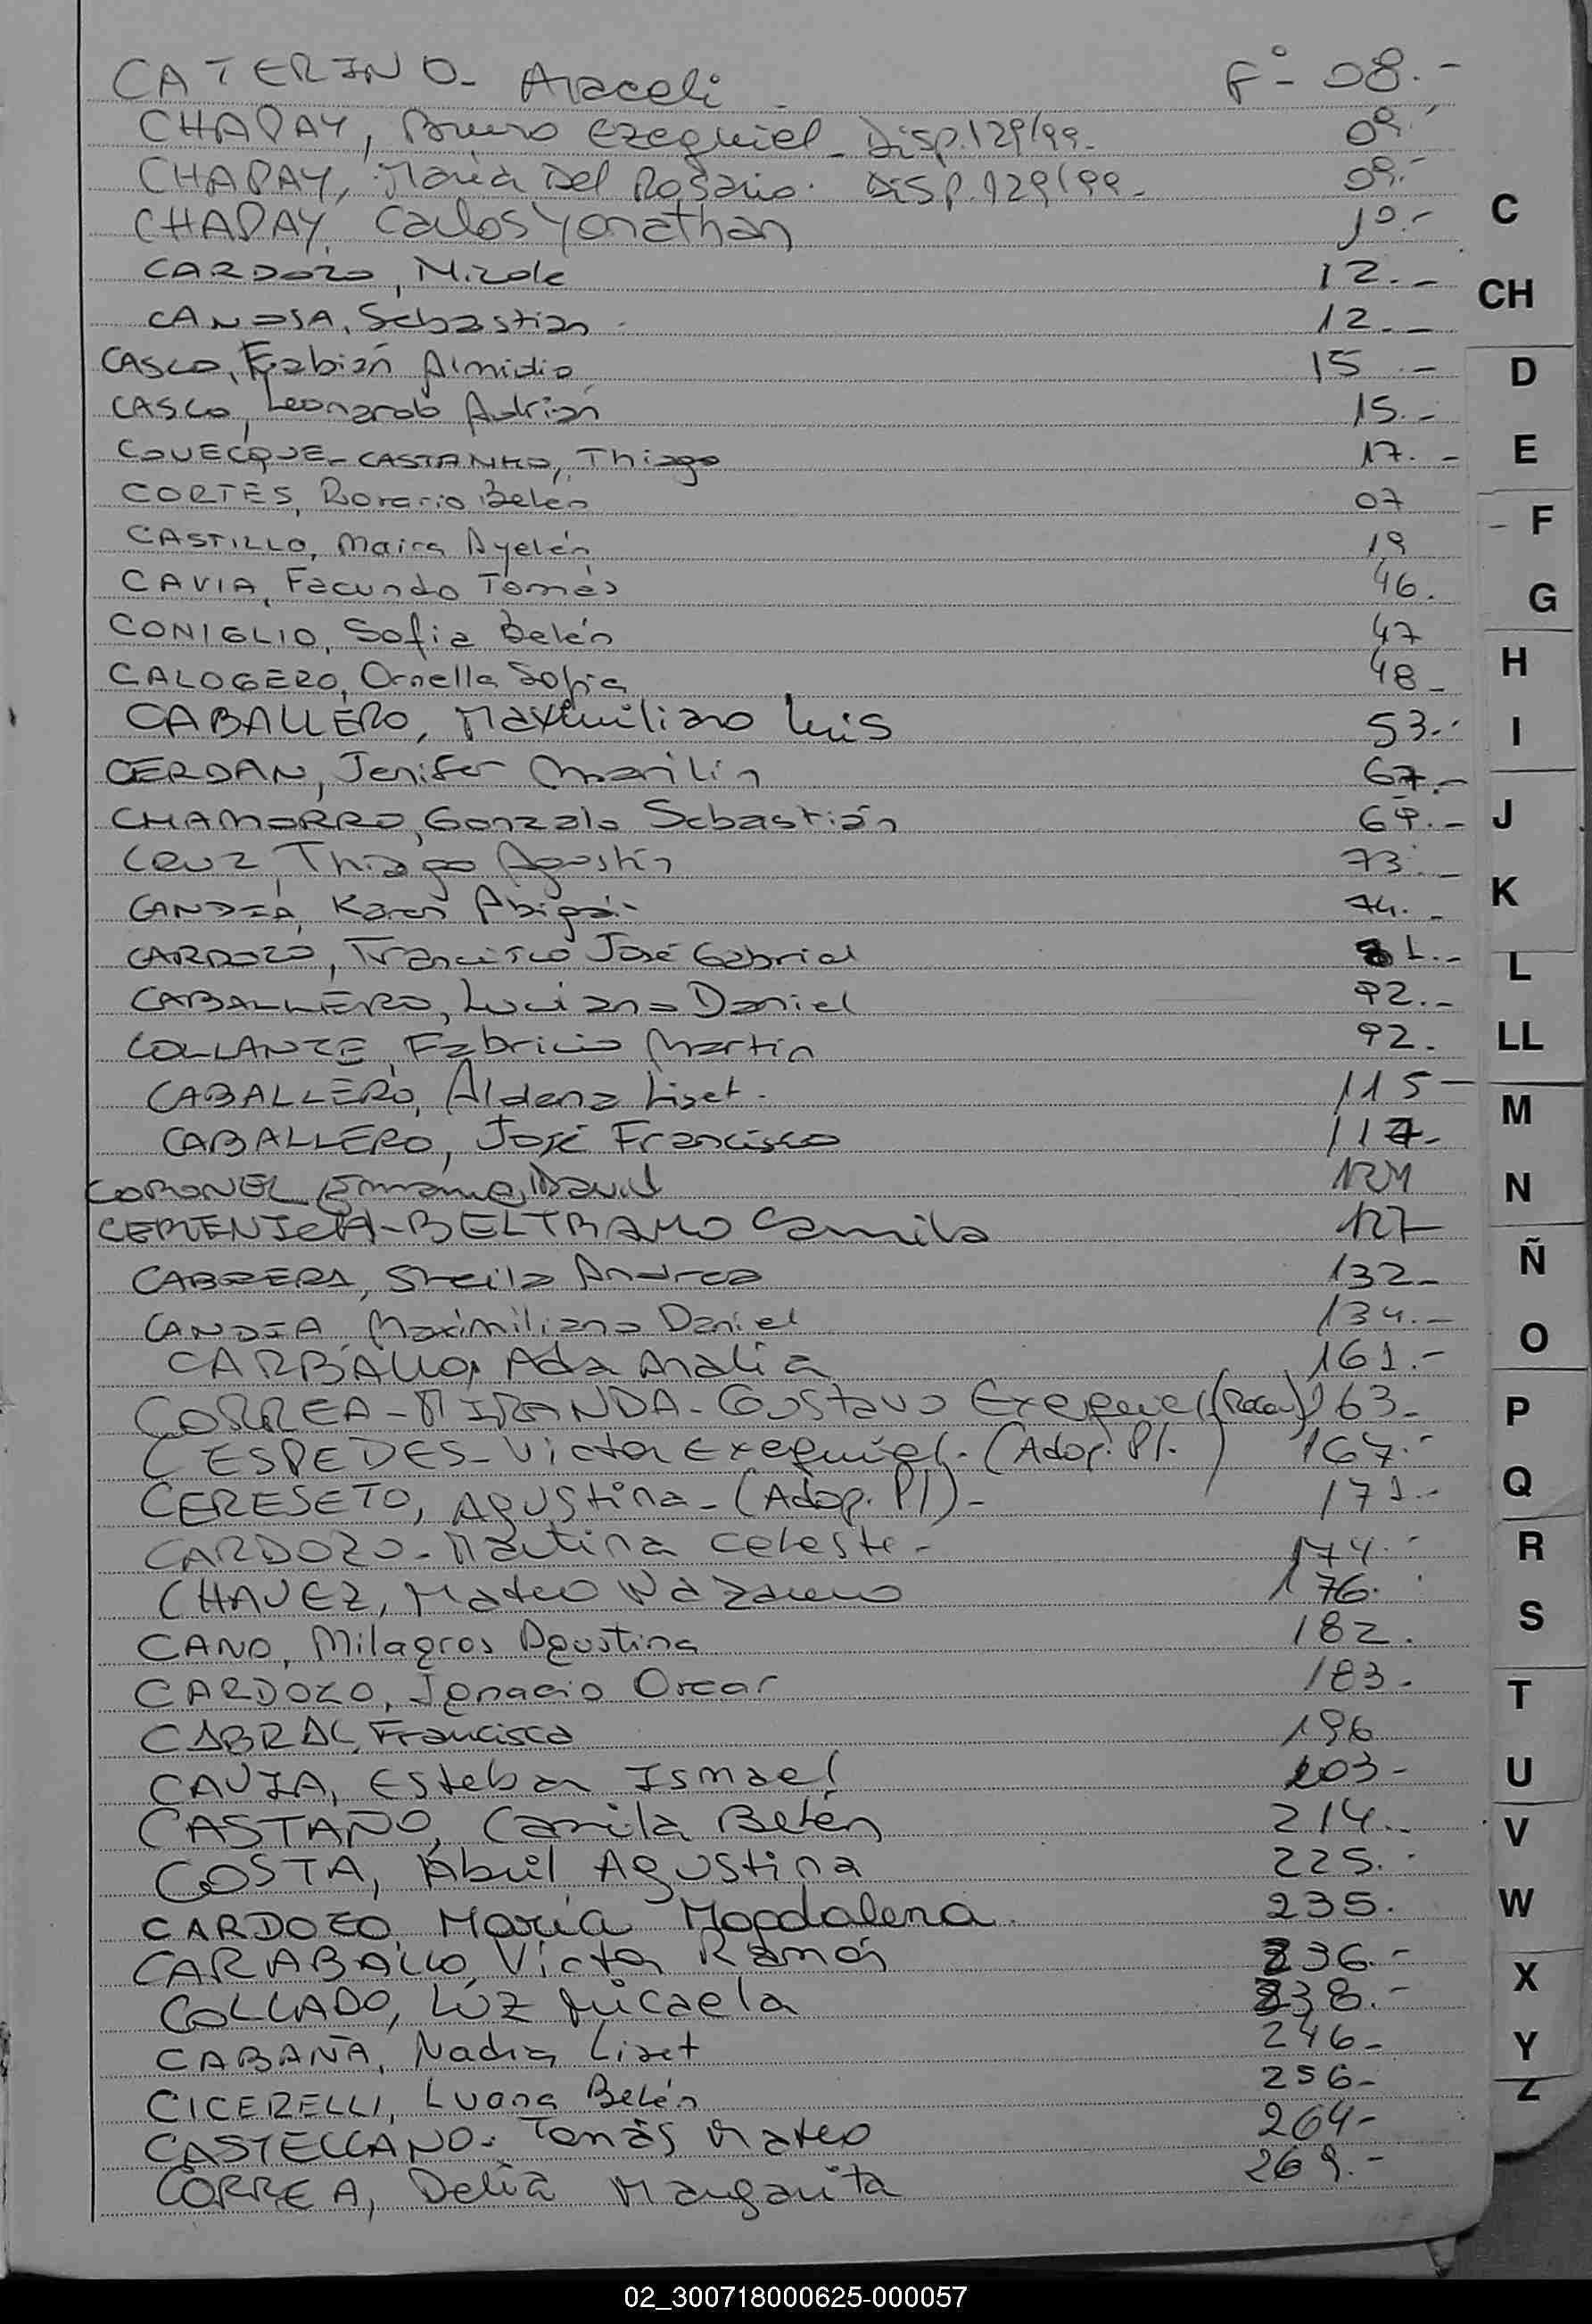 CATERINO - Araceli. Fº - 08.-
CHAPAY, Bruno Ezequiel - Disp. 129/99. 09.-
CHAPAY, María Del Rosario. DISP. 129/99. 09.-
CHAPAY, Carlos Yonathan 10.-
CARDOZO, Nicole 12.-
CANOSA, Sebastian 12.-
CASCO, Fabián Almidio 15.-
CASCO, Leonardo Adrián 15.-
COUECQUE-CASTANHO, Thiago 17.-
CORTÉS, Rosario Belén 07
CASTILLO, Maira Ayelén 19
CAVIA, Facundo Tomás 46.
CONIGLIO, Sofia Belén 47
CALOGERO, Ornella Sofia 48-
CABALLERO, Maximiliano Luis 53.-
CERDAN, Jenifer Marilin 67.-
CHAMORRO, Gonzalo Sebastián 69.-
CRUZ, Thiago Agustín 73.-
CANDIA, Karen 74.-
CARDOZO, Francisco José Gabriel 81.-
CABALLERO, Luciano Daniel 92.-
COLLANTE, Fabricio Martin 92.
CABALLERO, Aldana Liset. 115-
CABALLERO, José Francisco 117-
CORONEL David 124
-BELTRAMO Camila 127-
CABRERA, Sheila Andrea 132-
CANDIA, Maximiliano Daniel 134.-
CARBALLO, Ada Analia 161.-
CORREA-MIRANDA-Gustavo Exequiel 163-
CESPEDES-Victor Exequiel. (Adop. Pl.) 167.-
CERESETO, Agustina-(Adop. Pl)- 171.-
CARDOZO-Martina Celeste- 174.-
CHAVEZ, Mateo Nazareno 176.
CANO, Milagros Agustina 182.
CARDOZO, Ignacio Oscar 183.
CABRAL, Francisca 196
CAVIA, Esteban Ismael 203-
CASTAÑO, Camila Belén 214.-
COSTA, Abril Agustina 225.-
CARDOZO, María Magdalena. 235.
CARABALLO, Víctor Ramón 236.-
COLLADO, Luz Micaela 238.-
CABAÑA, Nadia Liset 246-
CICERELLI, Luana Belén 256-
CASTELLANO. Tomás Mateo 264-
CORREA, Delia Margarita 269.-
C
CH
D
E
F
G
H
I
J
K
L
LL
M
N
Ñ
O
P
Q
R
S
T
U
V
W
X
Y
Z
02_300718000625-000057